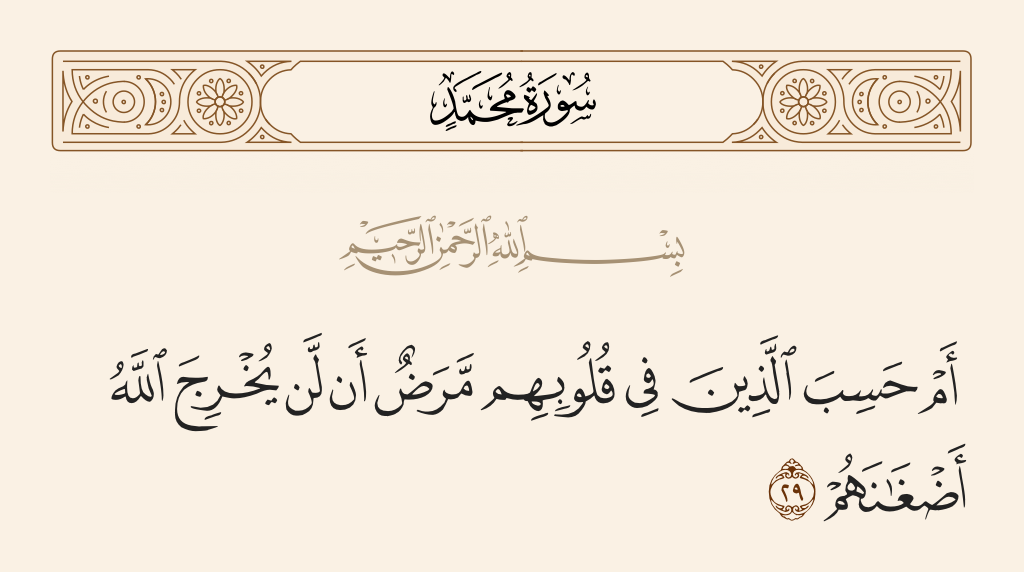 سُورَةُ مُحَمَّدٍ
بِسْمِ ٱللَّهِ ٱلرَّحْمَٰنِ ٱلرَّحِيمِ
أَمْ حَسِبَ ٱلَّذِينَ فِى قُلُوبِهِم مَّرَضٌ أَن لَّن يُخْرِجَ ٱللَّهُ
أَضْغَٰنَهُمْ ٢٩